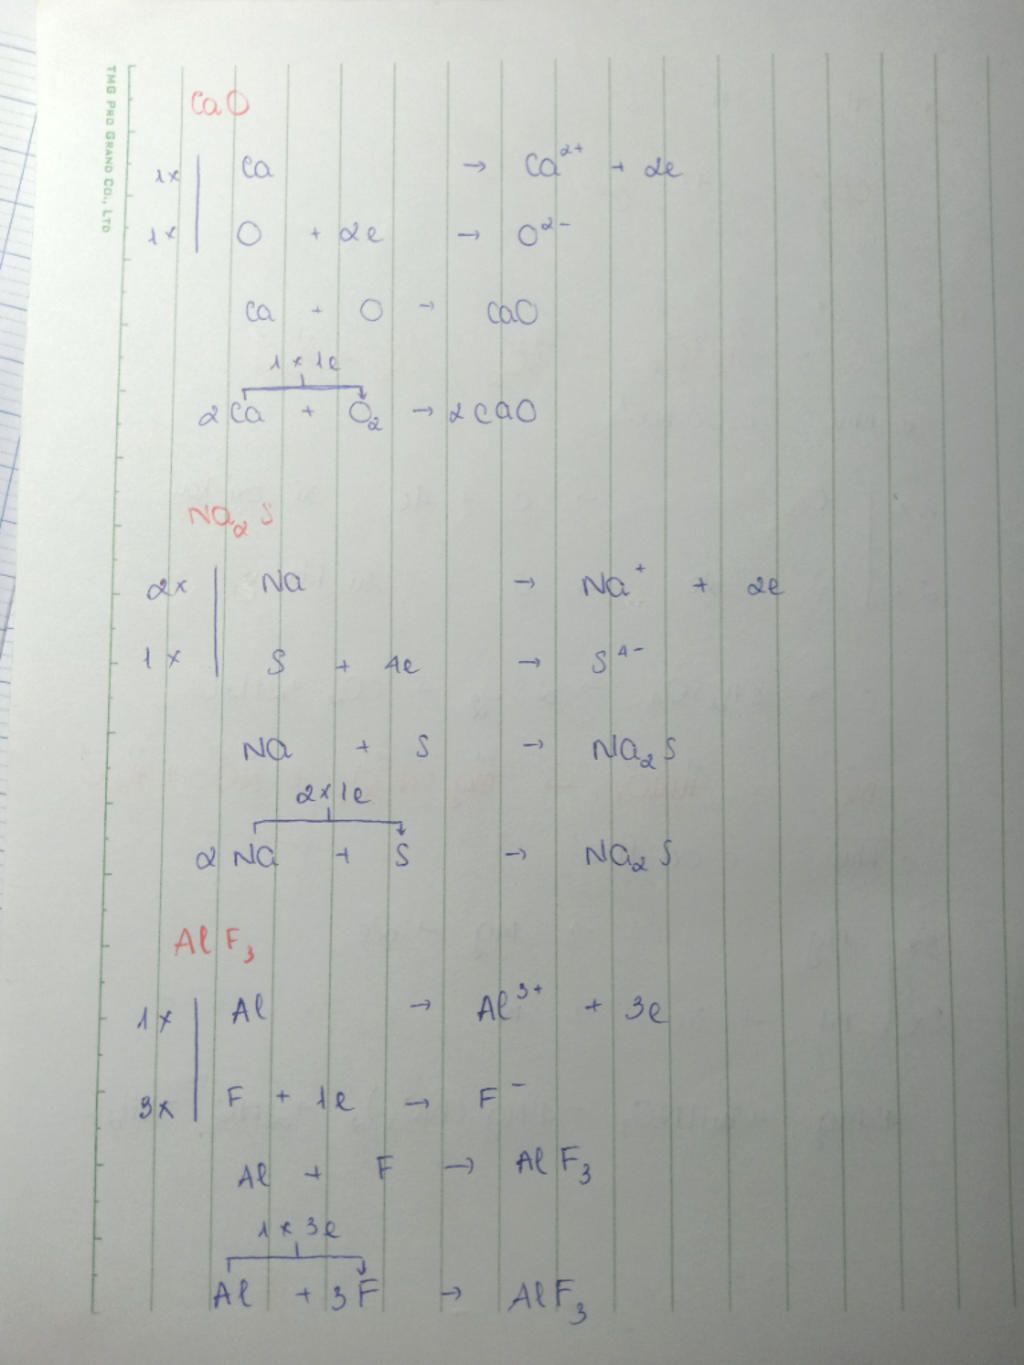 TMG PRO GRAND CO., LTD
CaO
1x | Ca → Ca²⁺ + 2e
1x | O + 2e → O²⁻
Ca + O → CaO
1 x 1e
2Ca + O₂ → 2CaO
Na₂S
2x | Na → Na⁺ + 2e
1x | S + 4e → S⁴⁻
Na + S → Na₂S
2x1e
2Na + S → Na₂S
AlF₃
1x | Al → Al³⁺ + 3e
3x | F + 1e → F⁻
Al + F → AlF₃
1 x 3e
Al + 3F → AlF₃